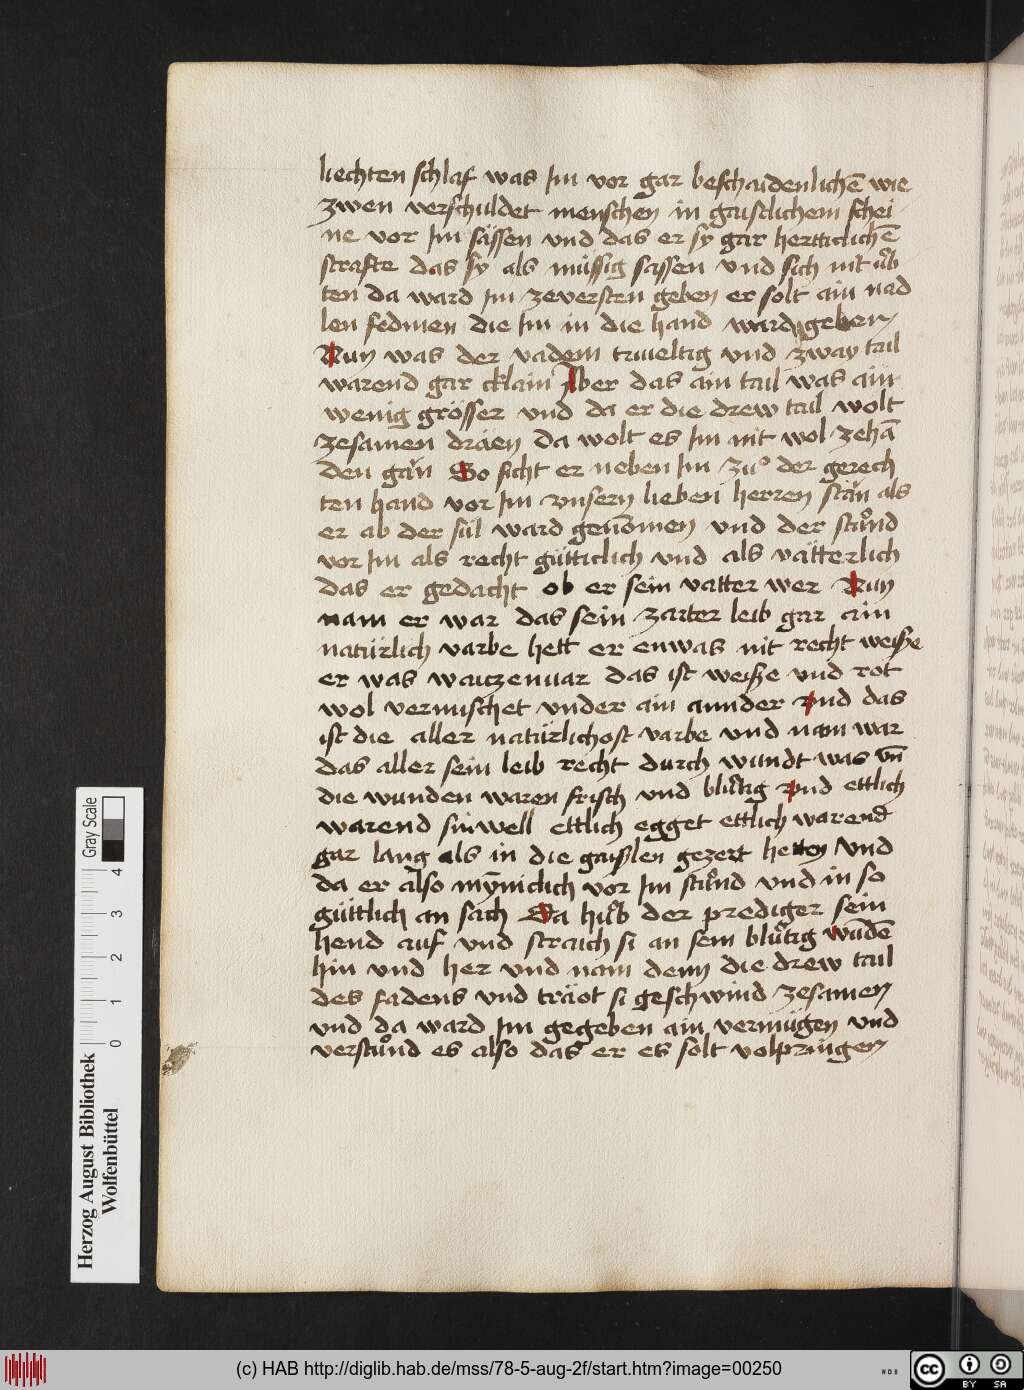 liechten schlaf was Im vor gar beschaidenlichē wie
zwen verschuldet menschen in gaistlichem schei
ne vor Im sässen vnd das er sÿ gar hertticlichē
strafte das sy als müssig sassen vnd sich nit ůb
ten da ward Im zeversten geben er solt ain nad
len fedmen die Im in die hand ward geben
Nun was der vadem triueltig vnd zway tail
warend gar cklain Aber das ain tail was ain
wenig grösser vnd da er die drew tail wolt
zesamen dräen da wolt es Im nit wol zehā
den gän So sicht er neben Im zuͦ der gerech
ten hand vor Im vnsern lieben herren stän als
er ab der sül ward genōmen vnd der stůnd
vor Im als recht gütticlich vnd als vätterlich
das er gedacht ob er sein vatter wer Nun
nam er war das sein zarter leib gar ain
natürlich varbe hett er enwas nit recht weiße
er was waitzenuar das ist weiße vnd rot
wol vermischet vnder ain annder vnd das
ist die aller natürlichost varbe vnd nam war
das aller sein leib recht durch wundt was vn̄
die wunden waren frisch vnd blůtig vnd ettlich
warend sinwell ettlich egget ettlich warend
gar lang als in die gaislen gezert hetten Vnd
da er also mÿniclich vor Im stůnd vnd in so
güttlich an sach Da hůb der prediger sein
hend auf vnd straich si an sein blůtig wūdē
hin vnd her vnd nam denn die drew tail
des fadens vnd träot si geschwind zesamen
vnd da ward Im gegeben ain vermügen vnd
verstůnd es also das er es solt volpringen
Herzog August Bibliothek
Wolfenbüttel
Gray Scale
0 1 2 3 4
(c) HAB http://diglib.hab.de/mss/78-5-aug-2f/start.htm?image=00250
WDB
cc BY SA